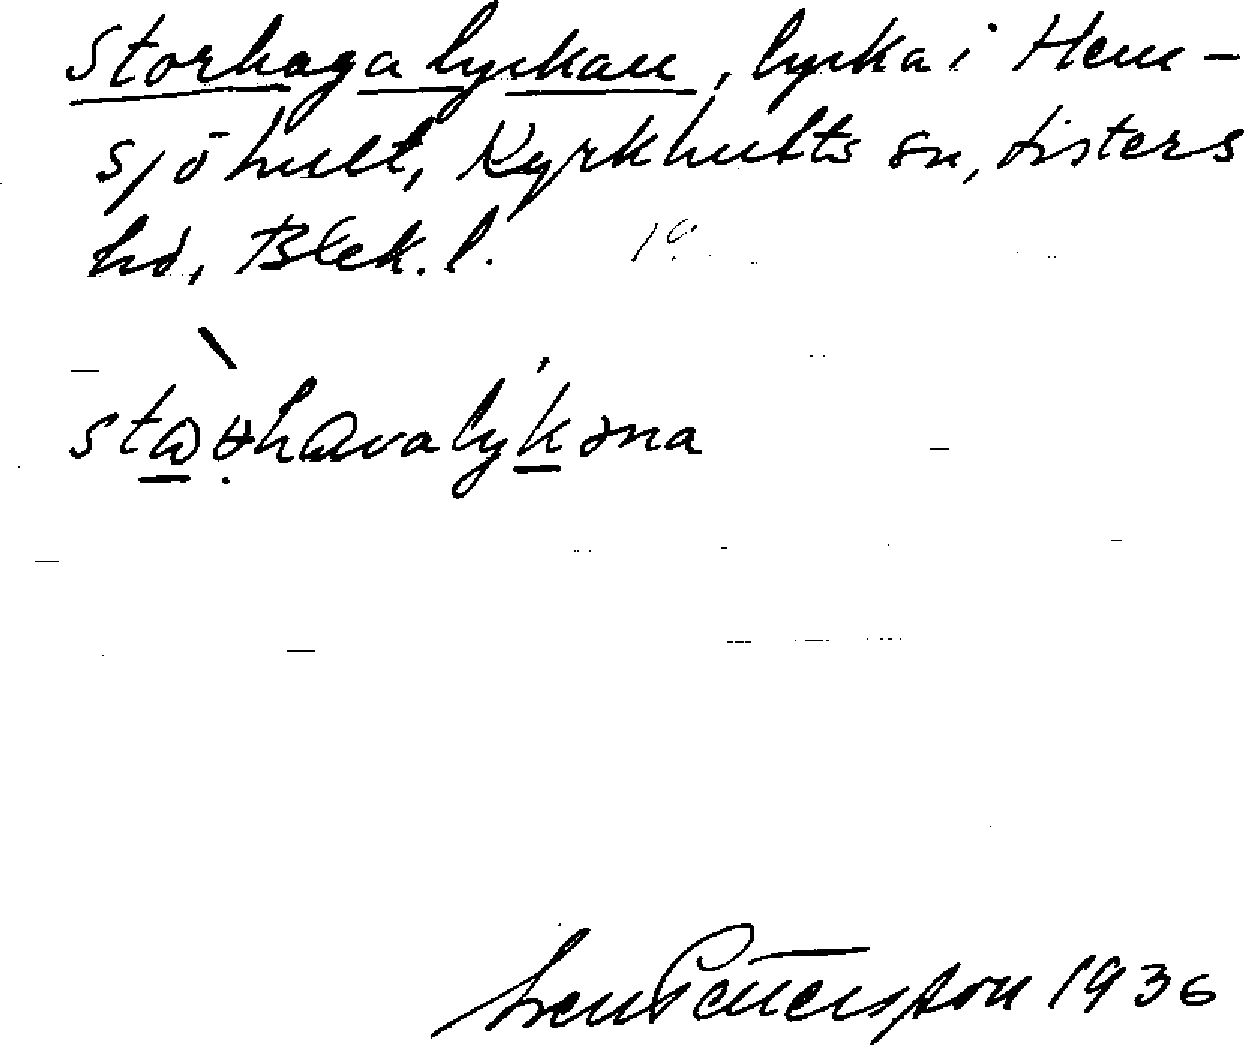 Storhagalyckan, lycka i Hem-
sjöhult, Kyrkhults sn, Listers
hd, Blek. l. 19
Sven Petersson 1936